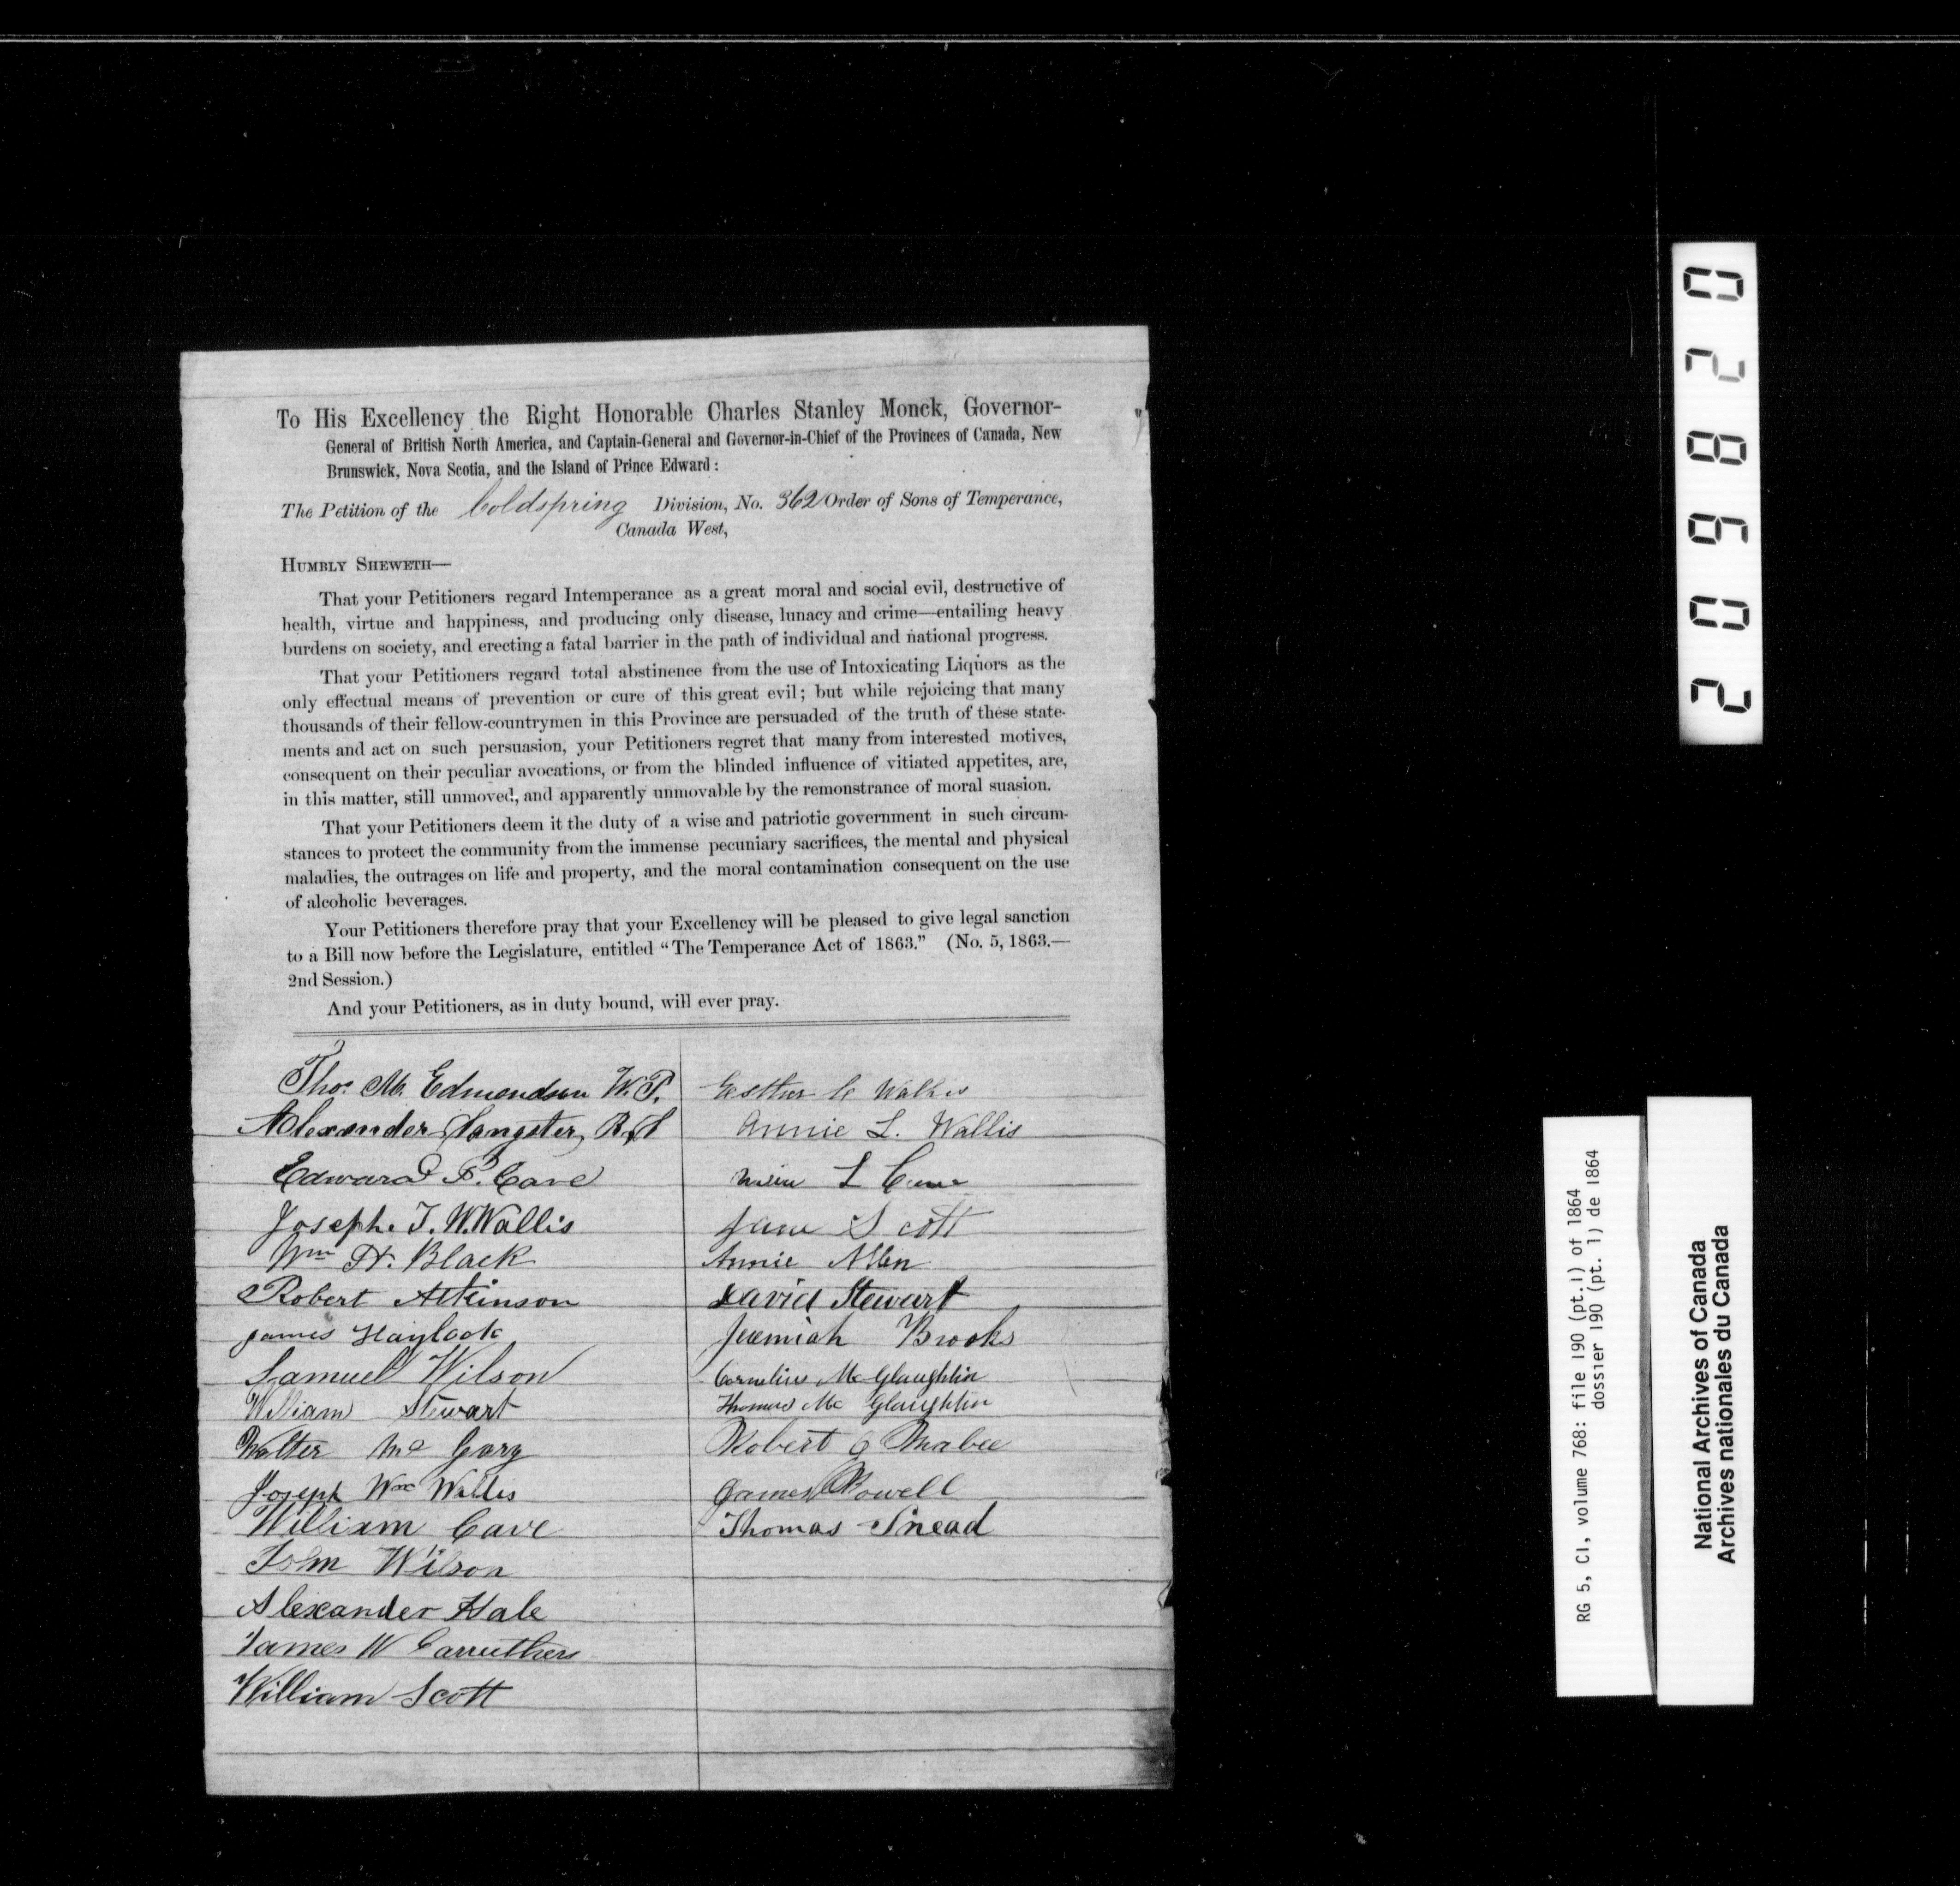 To His Excellency the Right Honorable Charles Stanley Monck, Governor-
General of British North America, and Captain-General and Governor-in-Chief of the Provinces of Canada, New
Brunswick, Nova Scotia, and the Island of Prince Edward:
The Petition of the Coldspring Division, No. 362 Order of Sons of Temperance,
Canada West,
HUMBLY SHEWETH—
That your Petitioners regard Intemperance as a great moral and social evil, destructive of
health, virtue and happiness, and producing only disease, lunacy and crime—entailing heavy
burdens on society, and erecting a fatal barrier in the path of individual and national progress.
That your Petitioners regard total abstinence from the use of Intoxicating Liquors as the
only effectual means of prevention or cure of this great evil; but while rejoicing that many
thousands of their fellow-countrymen in this Province are persuaded of the truth of these state-
ments and act on such persuasion, your Petitioners regret that many from interested motives,
consequent on their peculiar avocations, or from the blinded influence of vitiated appetites, are,
in this matter, still unmoved, and apparently unmovable by the remonstrance of moral suasion.
That your Petitioners deem it the duty of a wise and patriotic government in such circum-
stances to protect the community from the immense pecuniary sacrifices, the mental and physical
maladies, the outrages on life and property, and the moral contamination consequent on the use
of alcoholic beverages.
Your Petitioners therefore pray that your Excellency will be pleased to give legal sanction
to a Bill now before the Legislature, entitled "The Temperance Act of 1863." (No. 5, 1863.—
2nd Session.)
And your Petitioners, as in duty bound, will ever pray.
Thos M. Edmondson W.P.
Alexander Sangster, R.S
Edward P. Cave
Joseph. T. W. Wallis
Wm H. Black
Robert Atkinson
James Haylock
Samuel Wilson
William Stewart
Walter Mc
Joseph Wm Wallis
William Cave
John Wilson
Alexander Hale
James W Carruthers
William Scott
Esther C Wallis
Annie L. Wallis
L
Jane Scott
Annie Allen
David Stewart
Jeremiah Brooks
Cornelius Mc Glaughlin
Thomas Mc Glaughlin
Robert Mabee
James Powell
Thomas Snead
209820
RG 5, C1, volume 768: file 190 (pt.1) of 1864
dossier 190 (pt. 1) de 1864
National Archives of Canada
Archives nationales du Canada